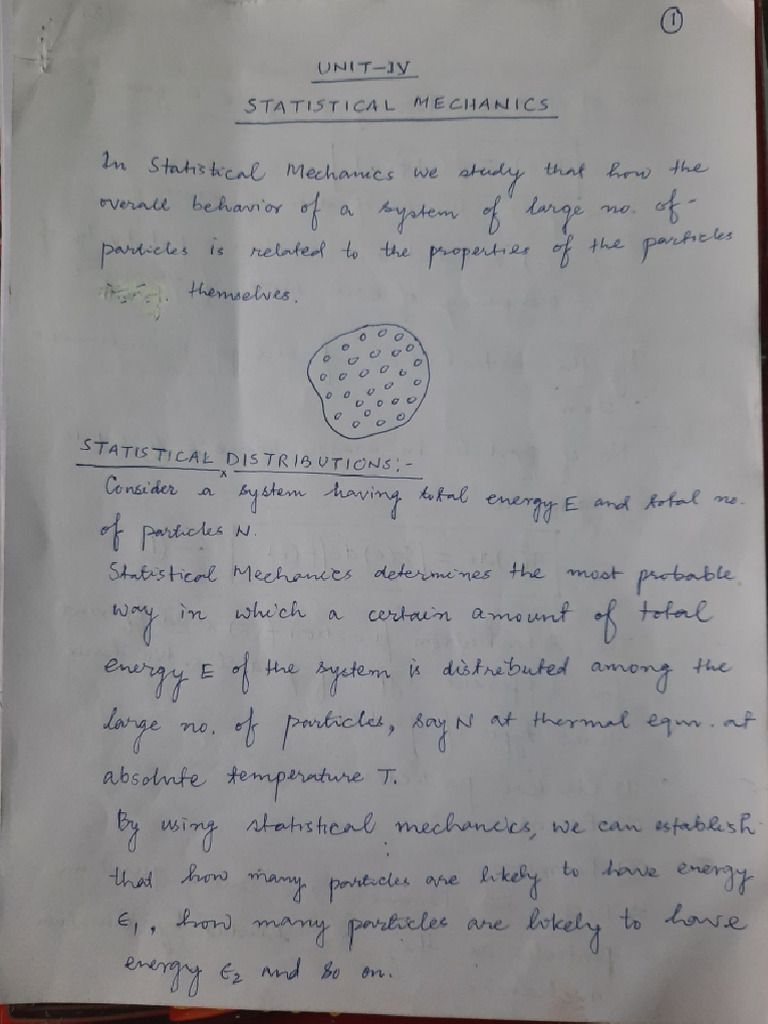 1
UNIT-IV
STATISTICAL MECHANICS
In Statistical Mechanics we study that how the
overall behavior of a system of large no. of-
particles is related to the properties of the particles
themselves.
STATISTICAL DISTRIBUTIONS:-
Consider a system having total energy E and total no.
of particles N.
Statistical Mechanics determines the most probable
way in which a certain amount of total
energy E of the system is distributed among the
large no. of particles, say N at thermal equm. at
absolute temperature T.
By using statistical mechanics, we can establish
that how many particles are likely to have energy
ϵ₁, how many particles are likely to have
energy ϵ₂ and so on.